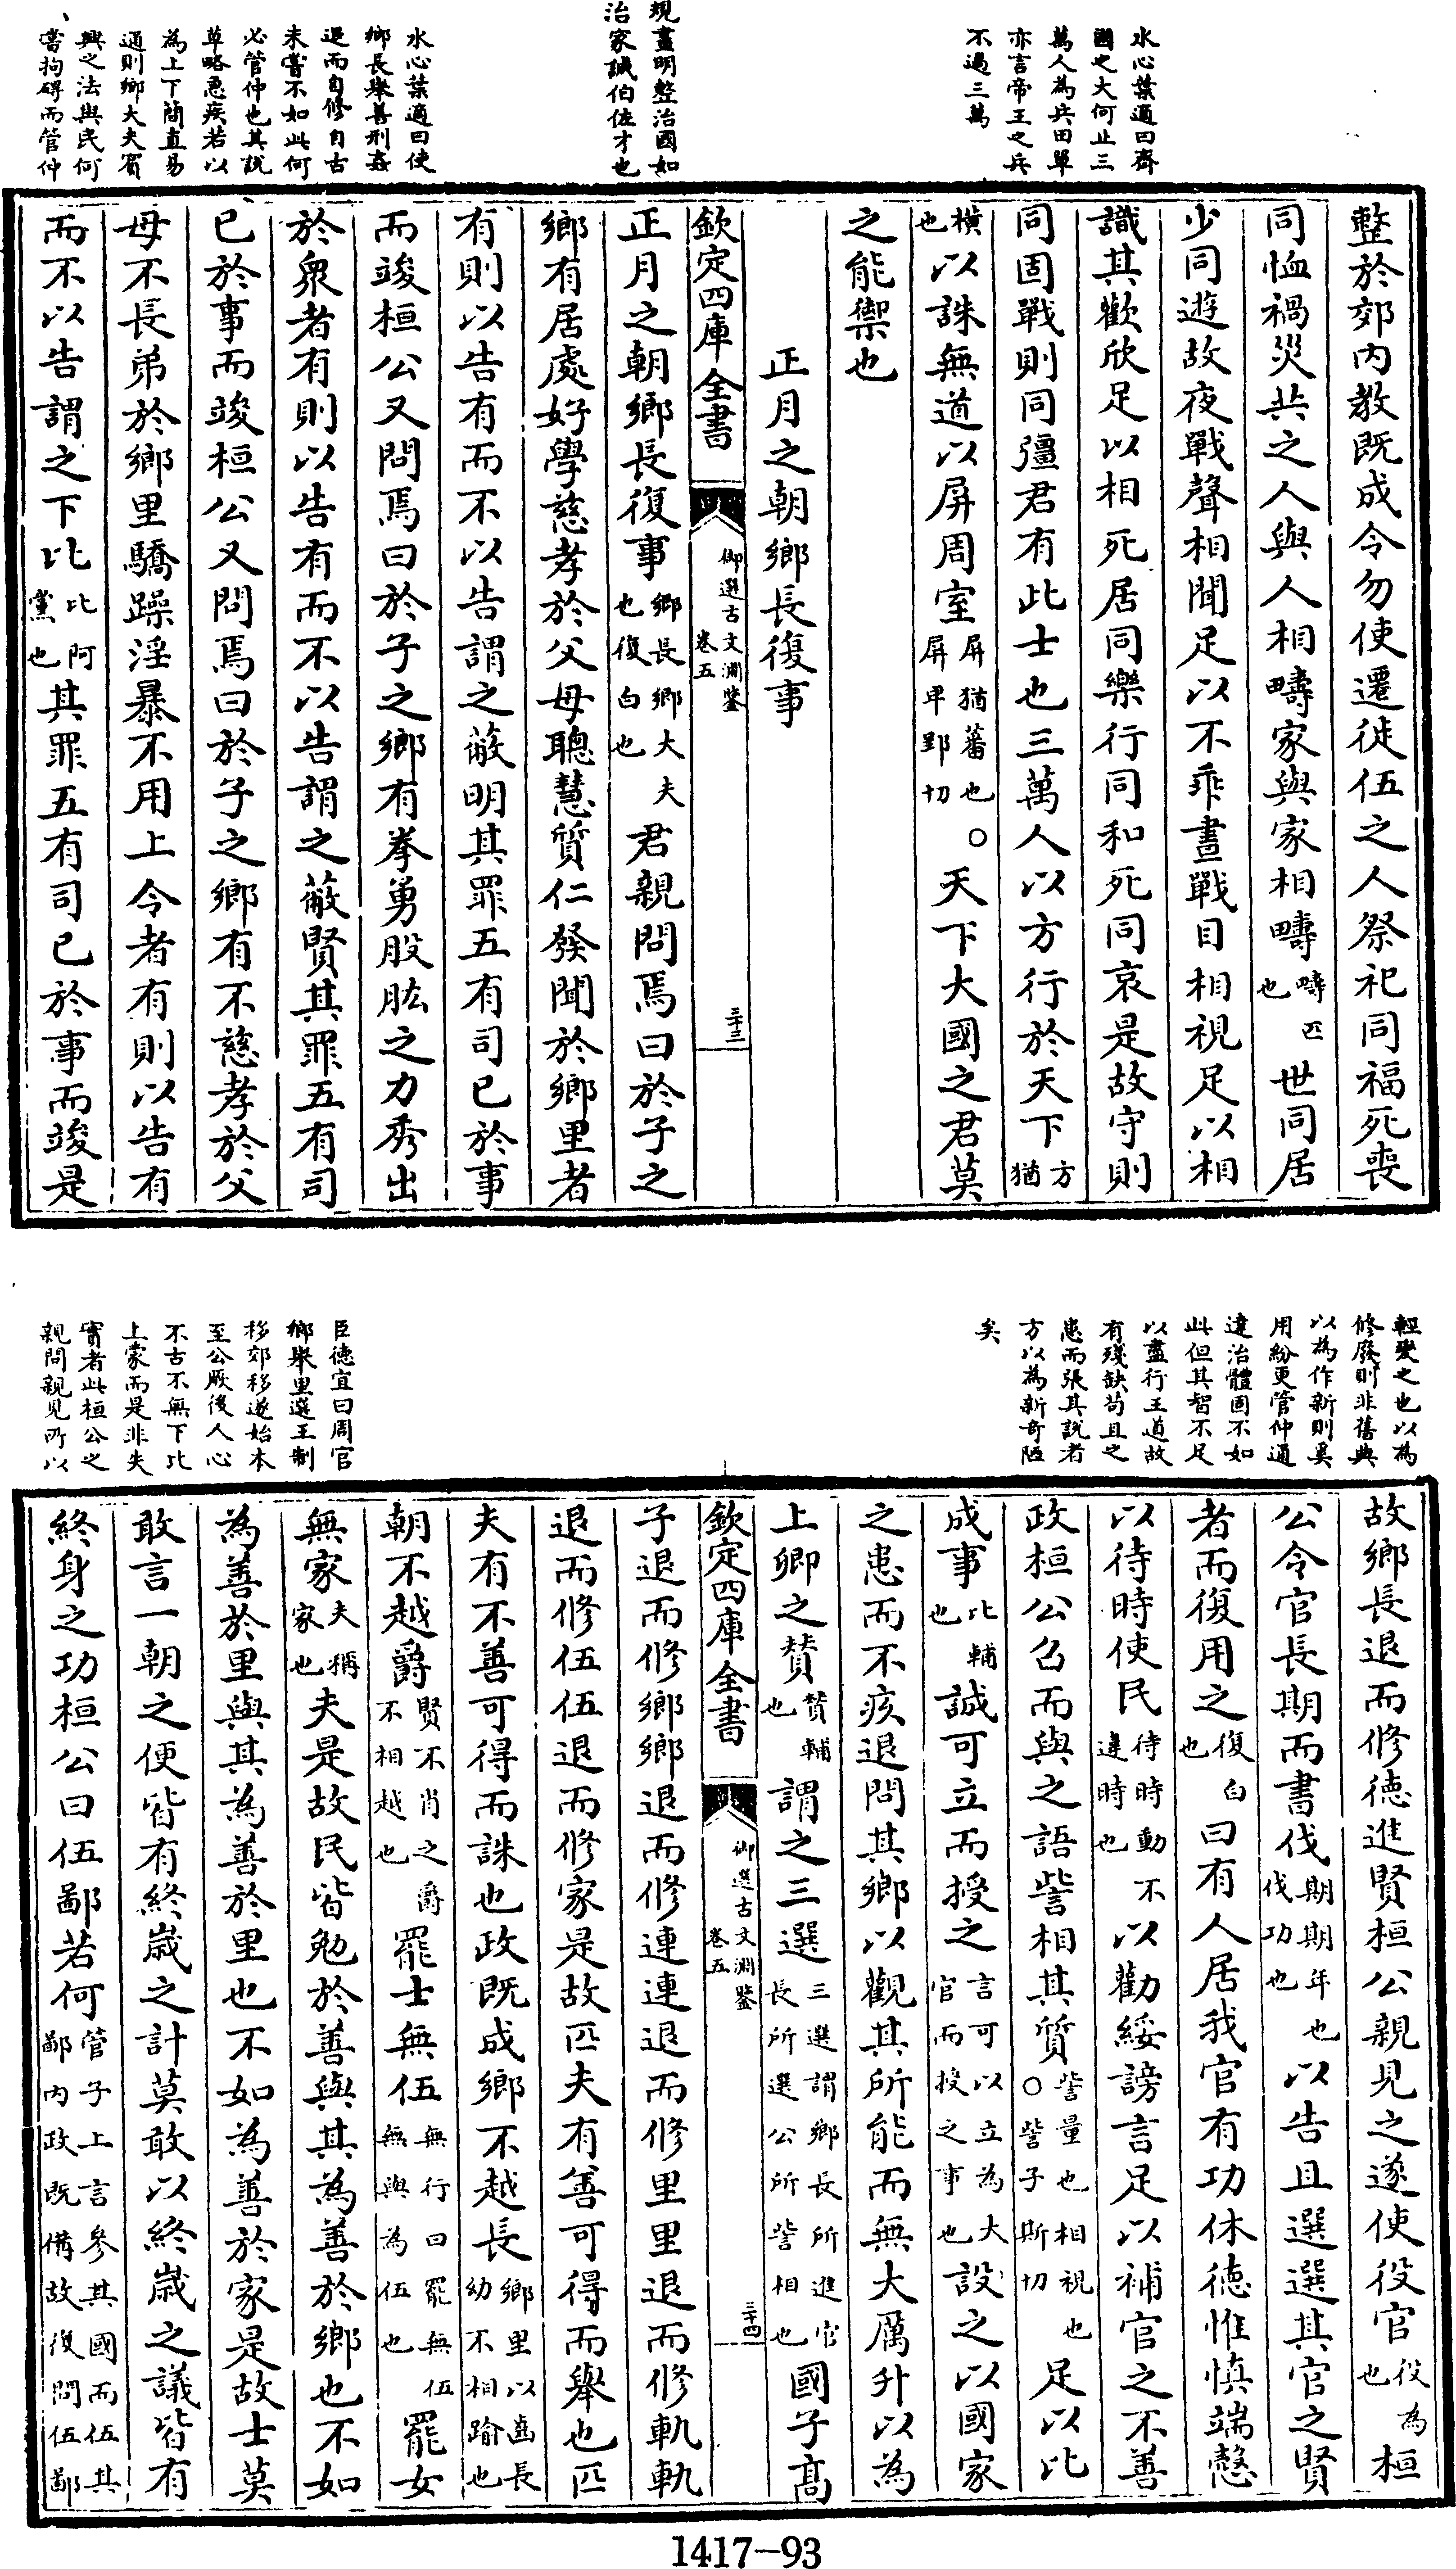 水心葉適曰齊
國之大何止三
萬人為兵田單
亦言帝王之兵
不過三萬
規畫明整治國如
治家誠伯佐才也
水心葉適曰使
鄉長舉善刑姦
退而自修自古
未嘗不如此何
必管仲也其說
草略急疾若以
為上下簡直易
通則鄉大夫賓
興之法與民何
嘗拘碍而管仲
整於郊内教既成令勿使遷徙伍之人祭祀同福死喪
同恤禍災共之人與人相疇家與家相疇疇匹也世同居
少同遊故夜戰聲相聞足以不乖晝戰目相視足以相
識其歡欣足以相死居同樂行同和死同哀是故守則
同固戰則同彊君有此士也三萬人以方行於天下方猶
横也以誅無道以屏周室屏猶蕃也屏卑郢切○天下大國之君莫
之能禦也
正月之朝鄉長復事
欽定四庫全書 御選古文淵鑒 卷五 三十三
正月之朝鄉長復事鄉長鄉大夫也復白也君親問焉曰於子之
鄉有居處好學慈孝於父母聰慧質仁發聞於鄉里者
有則以告有而不以告謂之蔽明其罪五有司已於事
而竣桓公又問焉曰於子之鄉有拳勇股肱之力秀出
於衆者有則以告有而不以告謂之蔽賢其罪五有司
已於事而竣桓公又問焉曰於子之鄉有不慈孝於父
母不長弟於鄉里驕躁淫暴不用上令者有則以告有
而不以告謂之下比比阿黨也其罪五有司已於事而竣是
輕變之也以為
修廢則非舊典
以為作新則奚
用紛更管仲通
達治體固不如
此但其智不足
以盡行王道故
有殘缺苟且之
患而張其說者
方以為新奇陋
矣
臣德宜曰周官
鄉舉里選王制
移郊移遂始本
至公厥後人心
不古不無下比
上蒙而是非失
實者此桓公之
親問親見所以
故鄉長退而修德進賢桓公親見之遂使役官役為也桓
公令官長期而書伐期期年也伐功也以告且選選其官之賢
者而復用之復白也曰有人居我官有功休德惟慎端慤
以待時使民待時動不違時也以勸綏謗言足以補官之不善
政桓公召而與之語訾相其質訾量也相視也○訾子斯切足以比
成事比輔也誠可立而授之言可以立為大官而授之事也設之以國家
之患而不疚退問其鄉以觀其所能而無大厲升以為
上卿之贊贊輔也謂之三選三選謂鄉長所進官長所選公所訾相也國子高
欽定四庫全書 御選古文淵鑒 卷五 三十四
子退而修鄉鄉退而修連連退而修里里退而修軌軌
退而修伍伍退而修家是故匹夫有善可得而舉也匹
夫有不善可得而誅也政既成鄉不越長鄉里以齒長幼不相踰也
朝不越爵賢不肖之爵不相越也罷士無伍無行曰罷無伍無與為伍也罷女
無家夫稱家也夫是故民皆勉於善與其為善於鄉也不如
為善於里與其為善於里也不如為善於家是故士莫
敢言一朝之便皆有終歲之計莫敢以終歲之議皆有
終身之功桓公曰伍鄙若何管子上言參其國而伍其鄙内政既備故復問伍鄙
1417-93